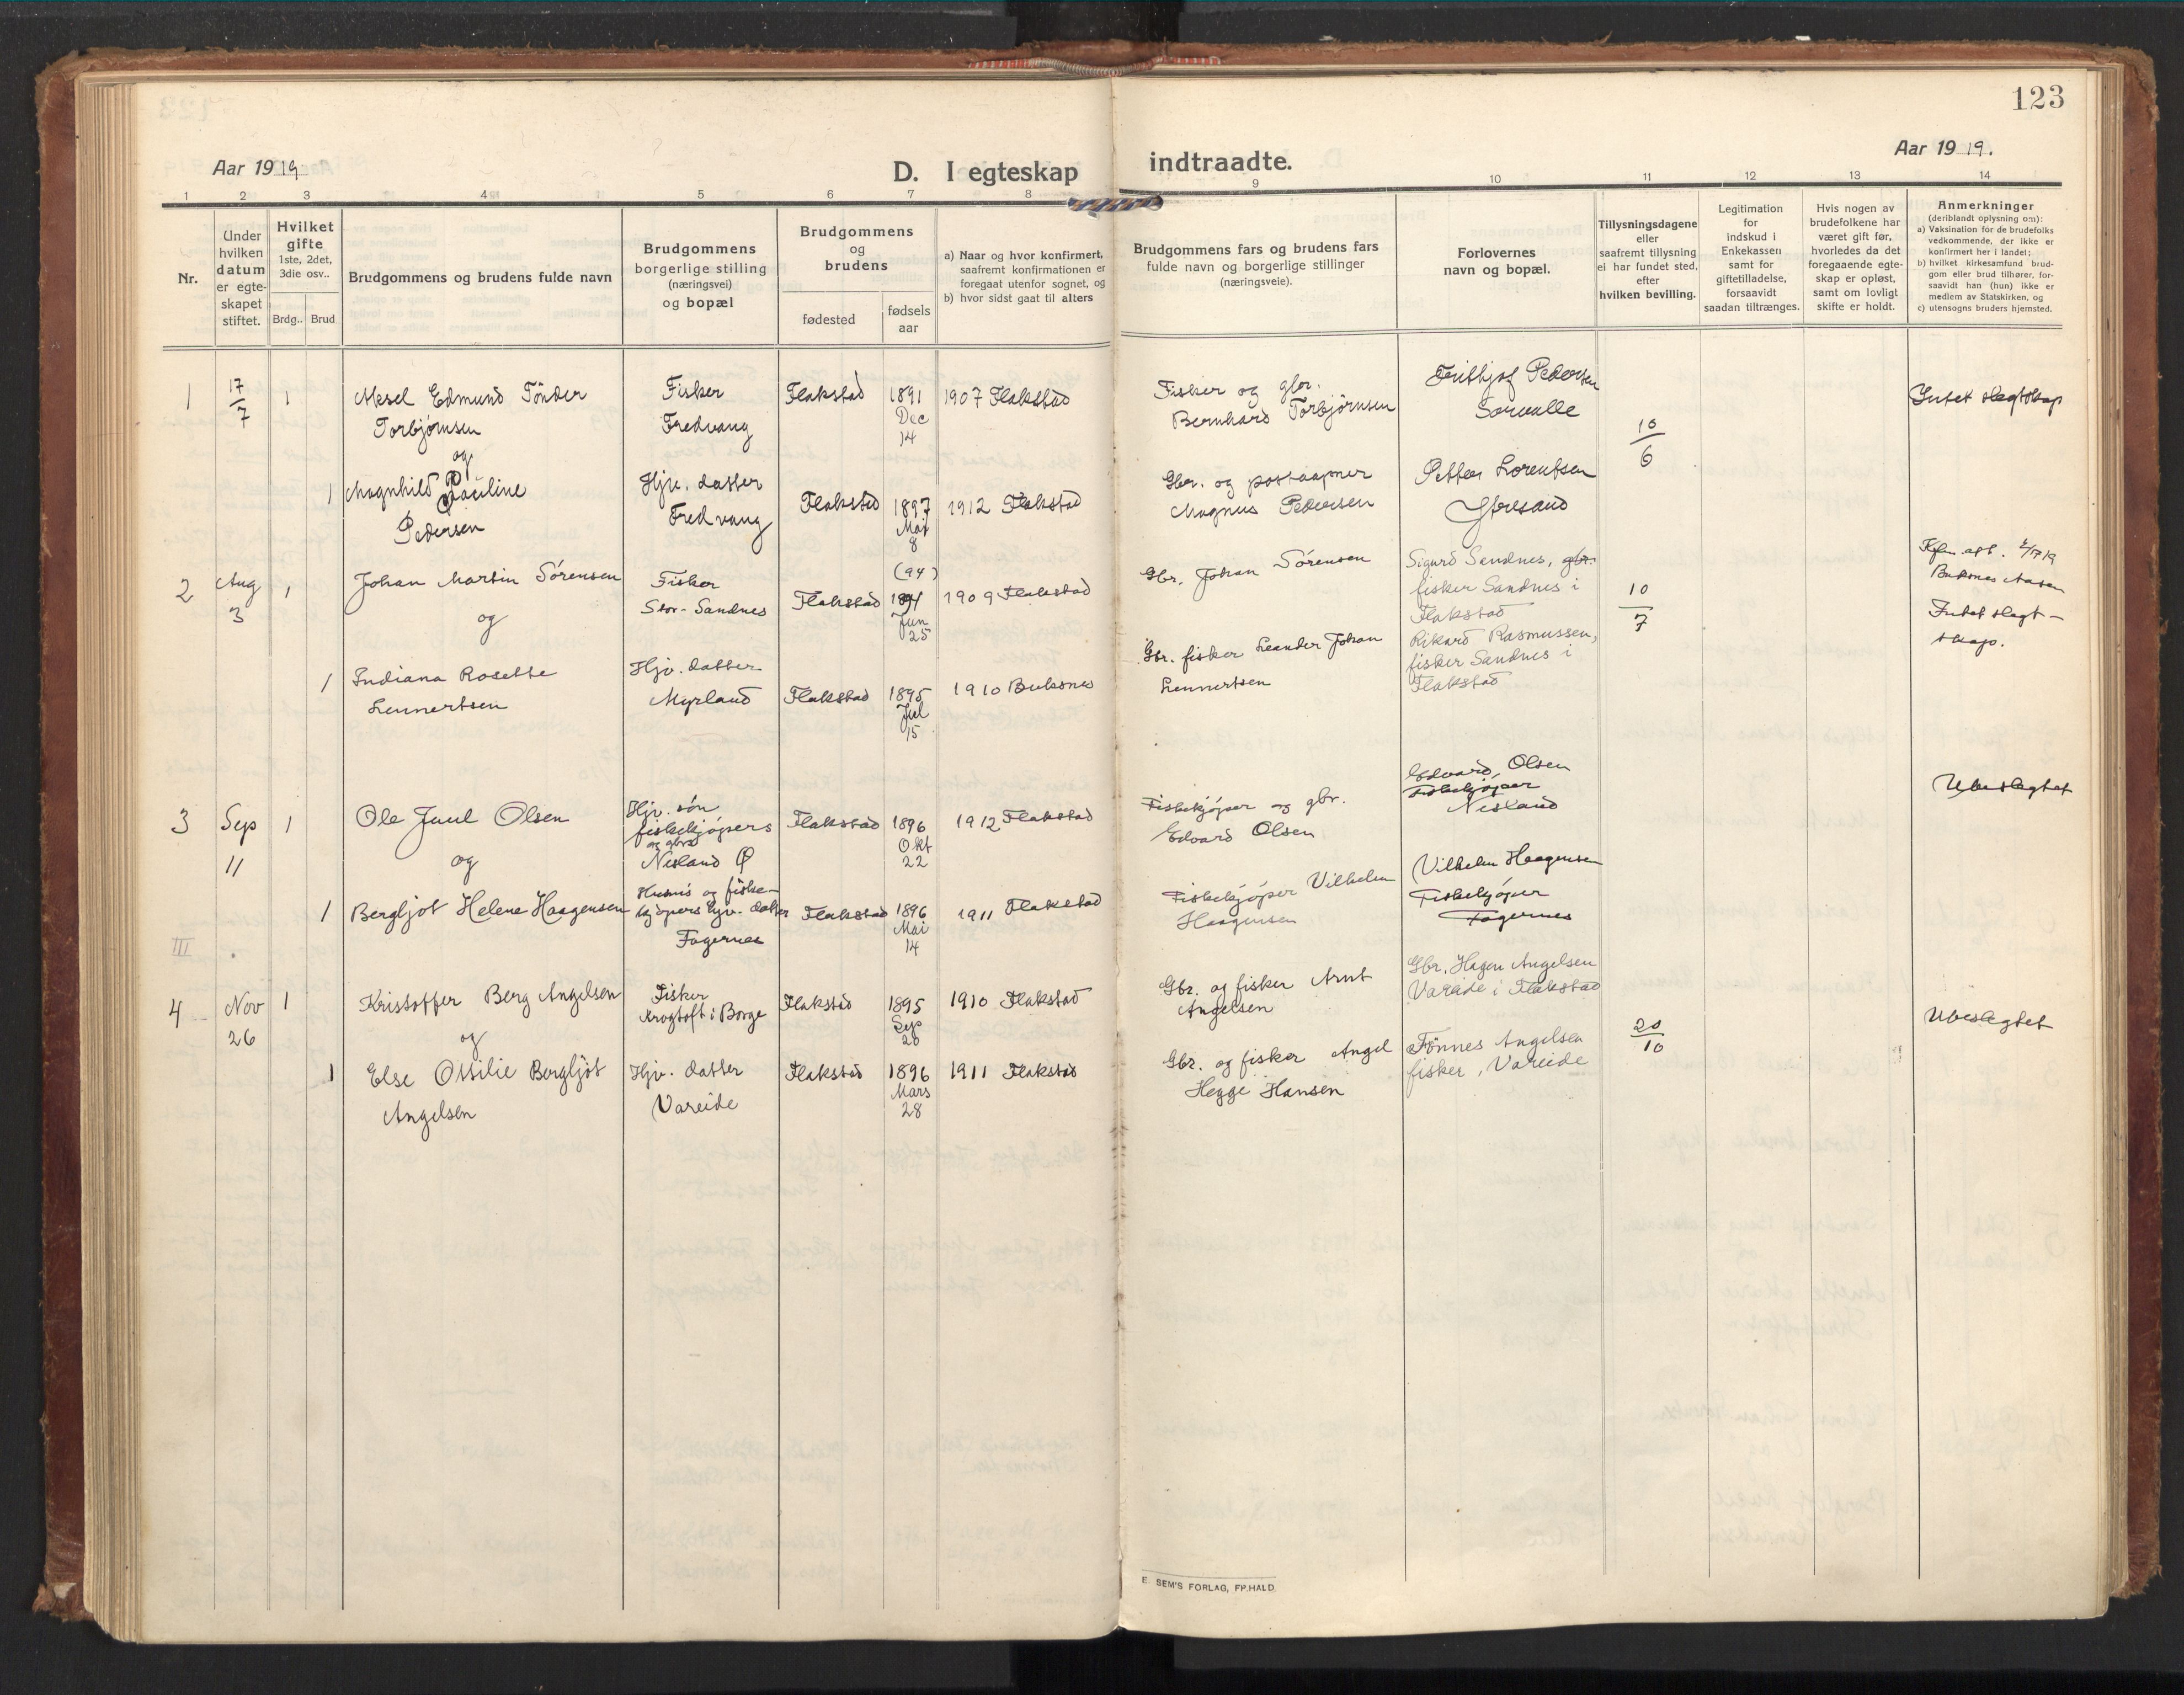 123
Aar 1919
D. I egteskap indtraadte.
Aar 1919.
1 2 3 4 5 6 7 8 9 10 11 12 13 14
Nr.
Under
hvilken
datum
er egte-
skapet
stiftet.
Hvilket
gifte
1ste, 2det,
3die osv..
Brdg.. Brud
Brudgommens og brudens fulde navn
Brudgommens
borgerlige stilling
(næringsvei)
og bopæl
Brudgommens
og
brudens
fødested
fødsels
aar
a) Naar og hvor konfirmert,
saafremt konfirmationen er
foregaat utenfor sognet, og
b) hvor sidst gaat til alters
Brudgommens fars og brudens fars
fulde navn og borgerlige stillinger
(næringsveie).
Forlovernes
navn og bopæl.
Tillysningsdagene
eller
saafremt tillysning
ei har fundet sted,
efter
hvilken bevilling.
Legitimation
for
indskud i
Enkekassen
samt for
giftetilladelse,
forsaavidt
saadan tiltrænges.
Hvis nogen av
brudefolkene har
været gift før,
hvorledes da det
foregaaende egte-
skap er opløst,
samt om lovligt
skifte er holdt.
Anmerkninger
(deriblandt oplysning om):
a) Vaksination for de brudefolks
vedkommende, der ikke er
konfirmert her i landet;
b) hvilket kirkesamfund brud-
gom eller brud tilhører, for-
saavidt han (hun) ikke er
medlem av Statskirken, og
c) utensogns bruders hjemsted.
1
17/7
1
Aksel Edmund Tönder
Torbjørnsen
og
Fisker
Fredvang
Flakstad
1891
Dec
14
1907 Flakstad
Fisker og gbr.
Bernhard Torbjörnsen
Frithjof Pedersen
10/6
Intet slegtskap
1
Magnhild Pauline
Pedersen
Hjv. datter
Fredvang
Flakstad
1897
Mai
8
1912 Flakstad
Gbr. og postaapner
Magnus Pedersen
Petter Lorentsen
2
Aug
3
1
Johan Martin Sörensen
og
Fisker
Stor-Sandnes
Flakstad
(94)
1894
Jun
25
1909 Flakstad
Gbr. Johan Sörensen
Sigurd Sandnes, gbr.
fisker Sandnes i
Flakstad
10/7
Buksnes
Intet slegt-
skap.
1
Indiana Rosette
Lennertsen
Hjv. datter
Myrland
Flakstad
1895
Jul
15
1910 Buksnes
Gbr. fisker Leander Johan
Lennertsen
Rikard Rasmussen,
fisker Sandnes i
Flakstad
3
Sep
11
1
Ole Juul Olsen
og
Hjv. sön
fiskekjöpers
og gbrs
Nesland
Flakstad
1896
Okt
22
1912 Flakstad
Fiskekjöper og gbr.
Edvard Olsen
Edvard Olsen
Fiskekjöper
Nesland
Ubeslegtet
1
Bergljot Helene Haagensen
Husm's og fiske-
kjöpers hjv. datter
Fagernes
Flakstad
1896
Mai
14
1911 Flakstad
Fiskekjöper Vilhelm
Haagensen
Vilhelm Haagensen
Fiskekjöper
Fagernes
III
4
Nov
26
1
Kristoffer Berg Angelsen
og
Fisker
Krogtoft i Borge
Flakstad
1895
Sep
28
1910 Flakstad
Gbr. og fisker Arnt
Angelsen
Gbr. Hagen Angelsen
Vareide i Flakstad
20/10
Ubeslegtet
1
Else Ottilie Bergljot
Angelsen
Hjv. datter
Vareide
Flakstad
1896
Mars
28
1911 Flakstad
Gbr. og fisker Angel
Hegge Hansen
Tönnes Angelsen
fisker, Vareide
E. SEM'S FORLAG, FR.HALD